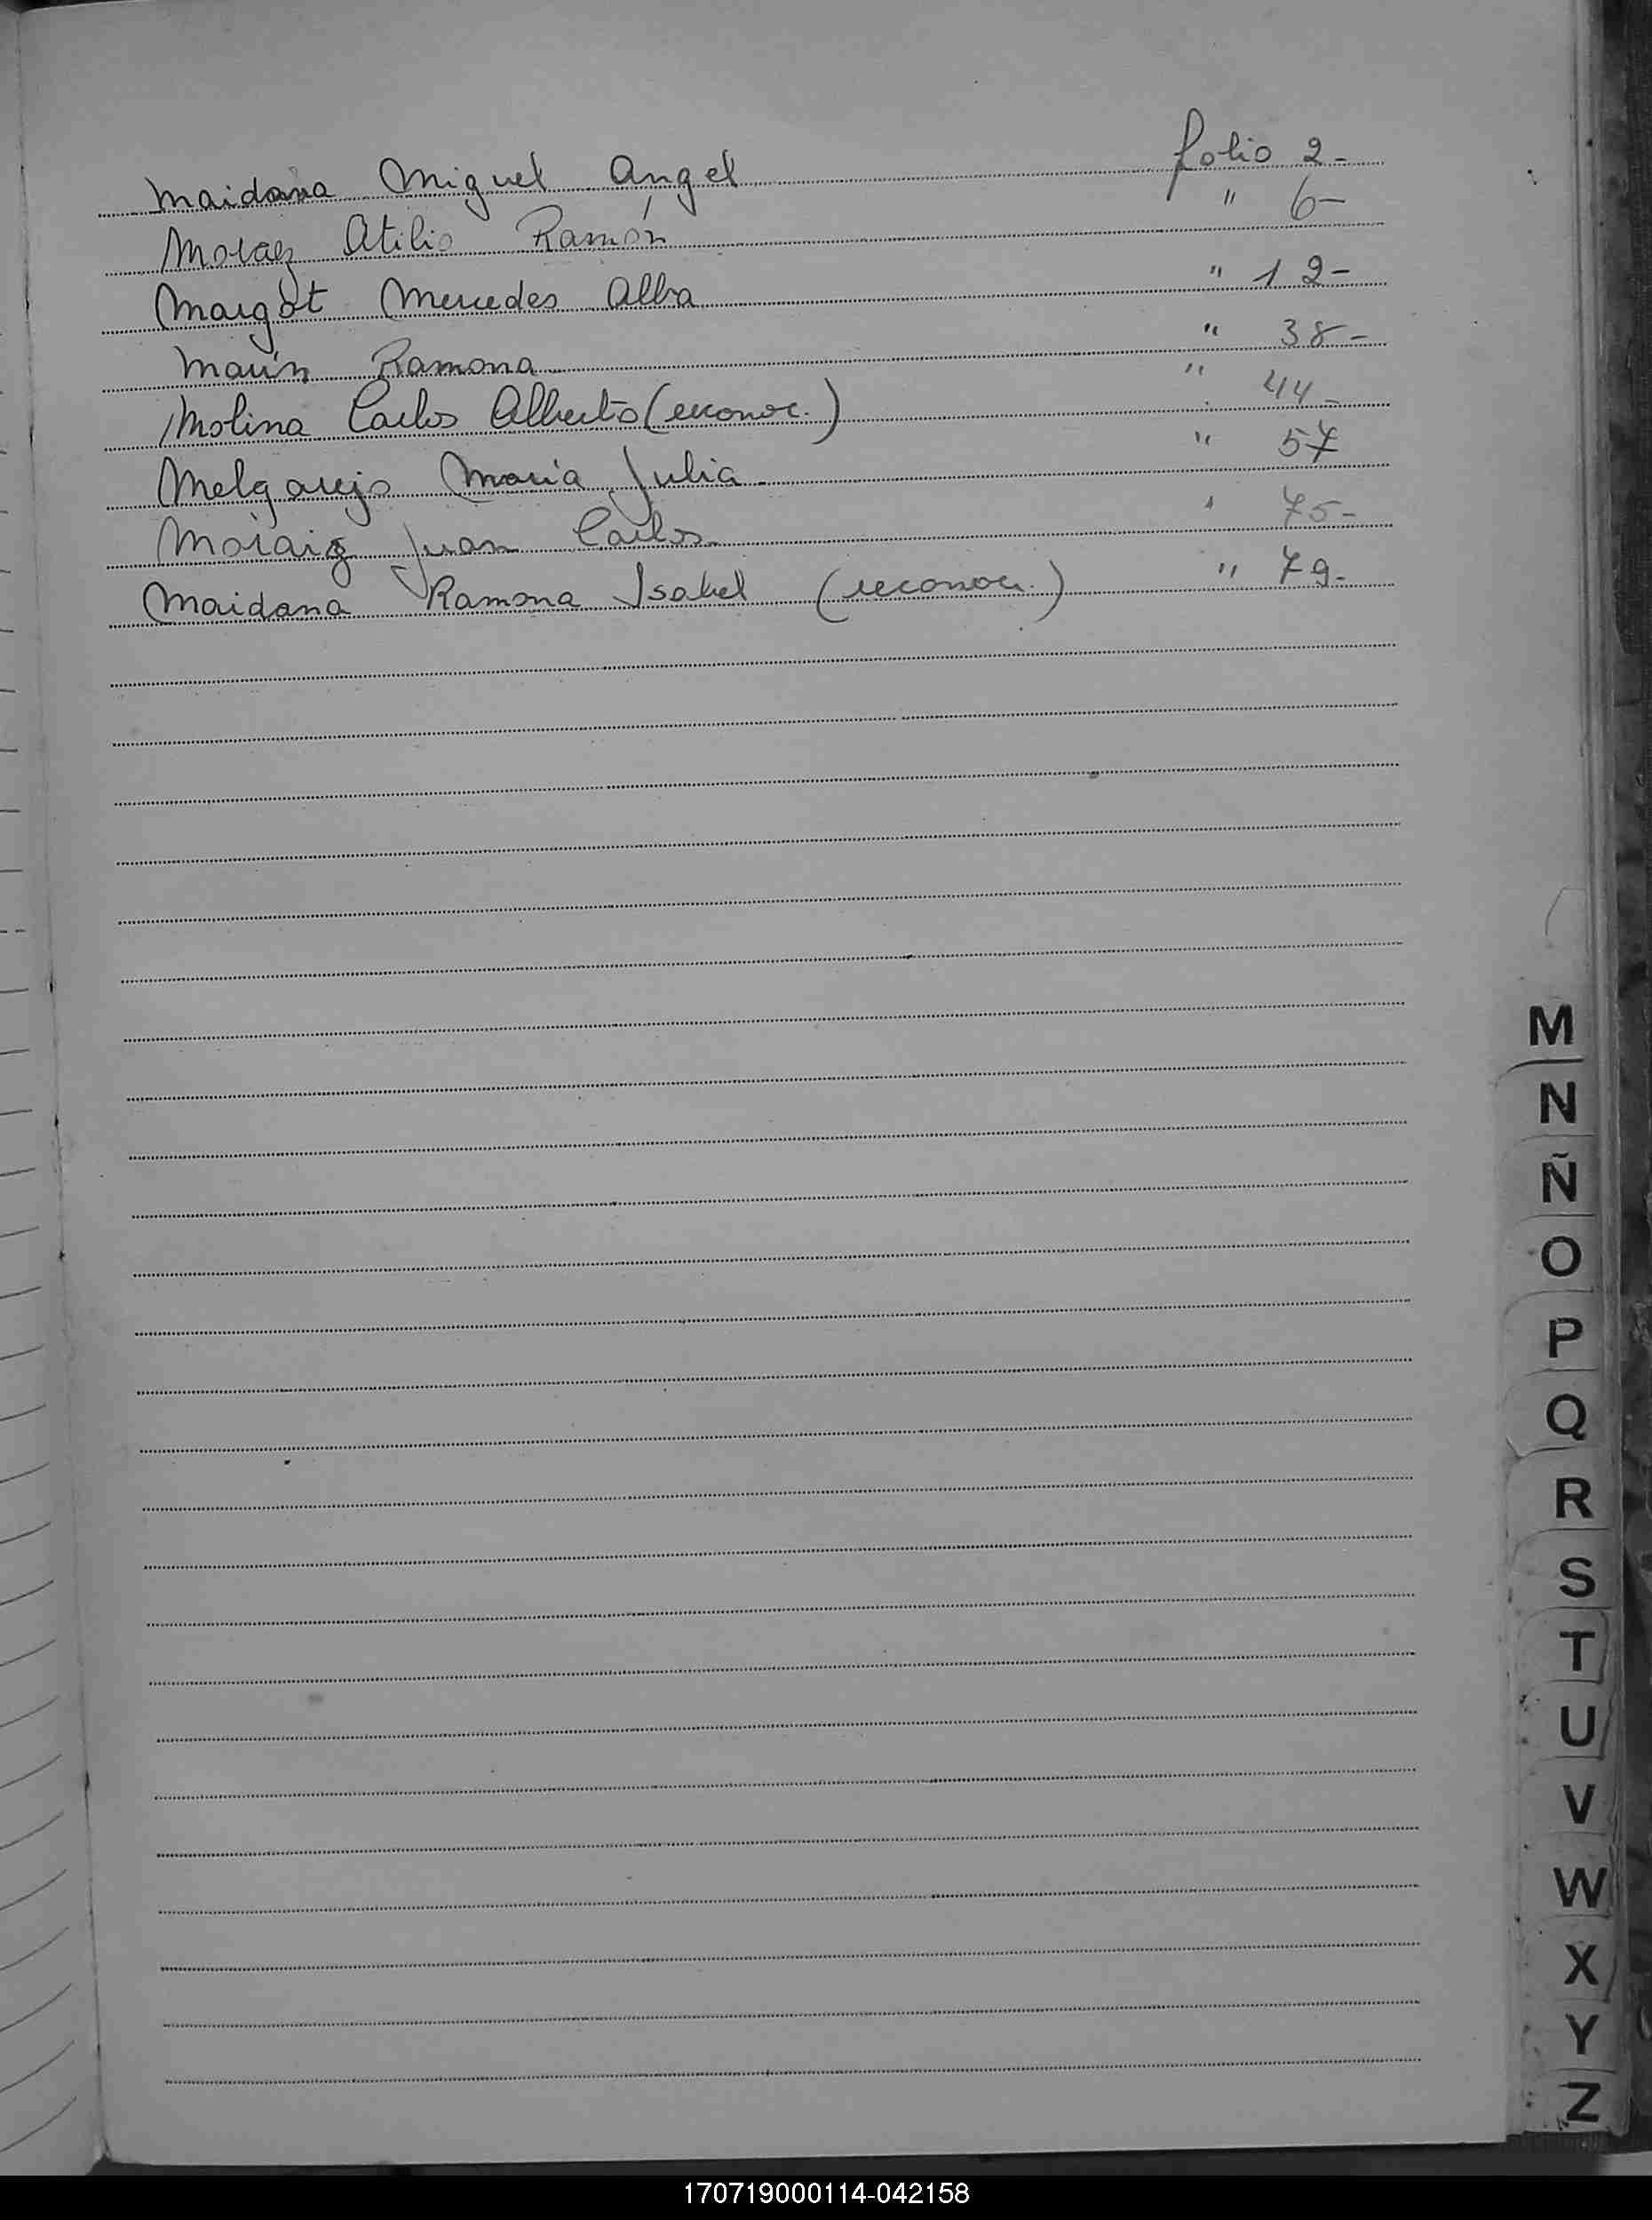 Maidana Miguel Angel folio 2-
Moraez Atilio Ramón " 6-
Margot Mercedes Alba " 12-
Marín Ramona " 38-
Molina Carlos Alberto (reconoc.) " 44-
Melgarejo María Julia " 57
Moraiz Juan Carlos " 75-
Maidana Ramona Isabel (reconoc.) " 79-
M
N
Ñ
O
P
Q
R
S
T
U
V
W
X
Y
Z
170719000114-042158